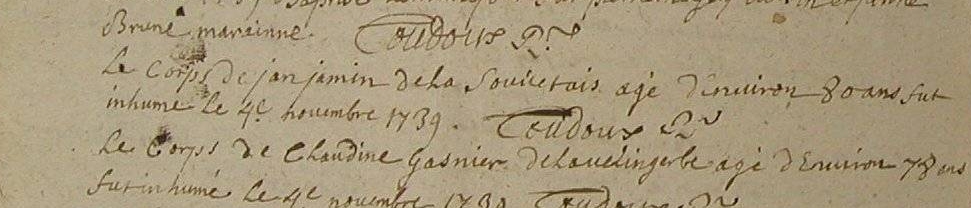 Brune marainne. Toudoux Rr
Le Corps de jan jamin de la Souicetais agé d'Environ 80 ans fut
inhumé le 4e novembre 1739. Toudoux Rr
Le Corps de Claudine Gasnier de agé d'Environ 78 ans
fut inhumé le 4e novembre 1739 Toudoux Rr